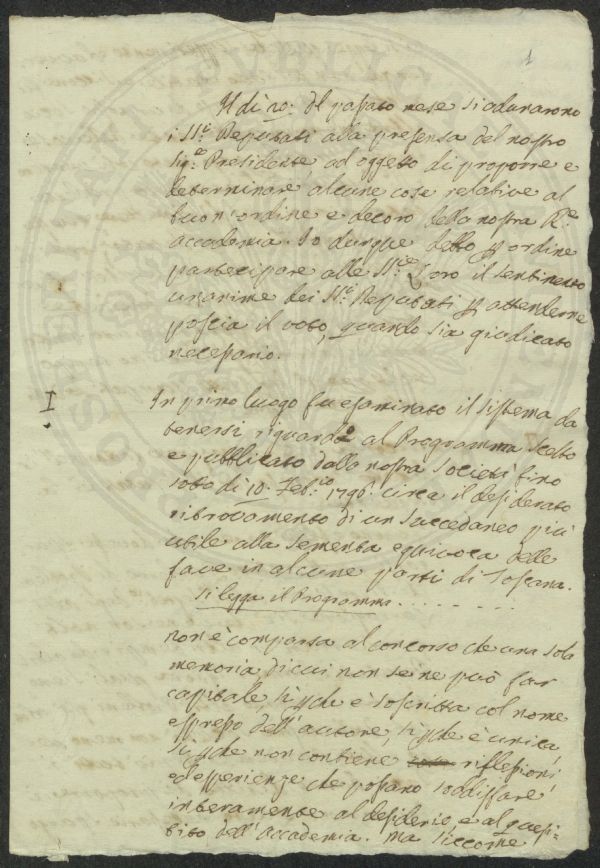 1
Il dì 20: del passato mese si adunarono
i SS.ri Deputati alla presenza del nostro
Sig.e Presidente ad oggetto di proporre e
determinare alcune cose relative al
buon'ordine e decoro della nostra R.e
Accademia. Io dunque detto ordine
partecipare alle SS.rie Loro il sentimento
unanime dei SS.ri Deputati attenderne
poscia il voto, quando sia giudicato
necessario.
I
In primo luogo fu esaminato il sistema da
tenersi riguardo al Programma scelto
e pubblicato dalla nostra Società fino
sotto dì 10. Feb.o 1796. circa il desiderato
ritrovamento di un succedaneo più
utile alla sementa equivoca delle
fave in alcune parti di Toscana.
Si legga il Programma . . . . . . . .
non è comparsa al concorso che una sola
memoria di cui non se ne può far
capitale, sì è soscritta col nome
espresso dell'autore, sì è unica,
sì non contiene riflessioni
ed esperienze che possano soddisfare
interamente al desiderio e al quesi-
tito dell'Accademia. Ma siccome